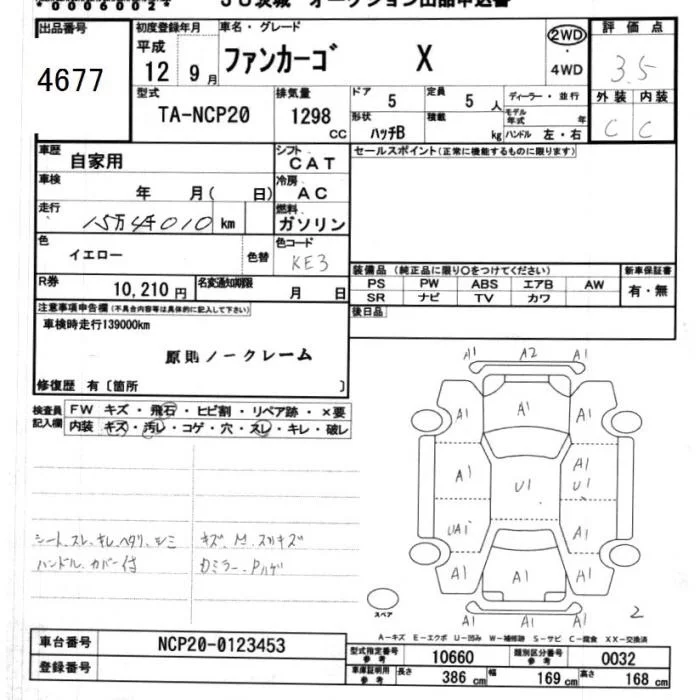 JU茨城 オークション出品申込書
出品番号
4677
初度登録年月
平成
12 9月
車名・グレード
ファンカーゴ X
2WD
・
4WD
評価点
3.5
外装 内装
C C
型式
TA-NCP20
排気量
1298
CC
ドア 5
定員 5 人
形状
ハッチB
積載
kg
ディーラー・並行
モデル
年式 年
ハンドル 左・右
車歴
自家用
シフト
CAT
セールスポイント(正常に機能するものに限ります)
車検
年 月( 日)
冷房
AC
走行
15万4千010 km
燃料
ガソリン
色
イエロー
色替
色コード
KE3
装備品 (純正品に限り〇をつけてください)
新車保証書
PS PW ABS エアB AW
有・無
SR ナビ TV カワ
R券
10,210円
名変通知期限
月 日
後日品
注意事項申告欄(不具合内容等は具体的に記入して下さい)
車検時走行139000km
原則ノークレーム
修復歴 有〔箇所 〕
検査員
記入欄
FW キズ・飛石・ヒビ割・リペア跡・×要
内装 キズ・汚レ・コゲ・穴・スレ・キレ・破レ
シート、スレ、キレ、ヘタリ、シミ
ハンドル、カバー付
キズ、M、スリキズ
Dミラー、Pハゲ
A1 A2 A1
A1 A1 A1
A1 U1 A1
U1
UA1 A1
A1 A1 A1
A1 A1 A1
スペア
2
A-キズ E-エクボ U-凹み W-補修跡 S-サビ C-腐食 XX-交換済
車台番号
NCP20-0123453
登録番号
型式指定番号
参考
10660
類別区分番号
参考
0032
車庫証明用
参考
長さ 386 cm
幅 169 cm
高さ 168 cm